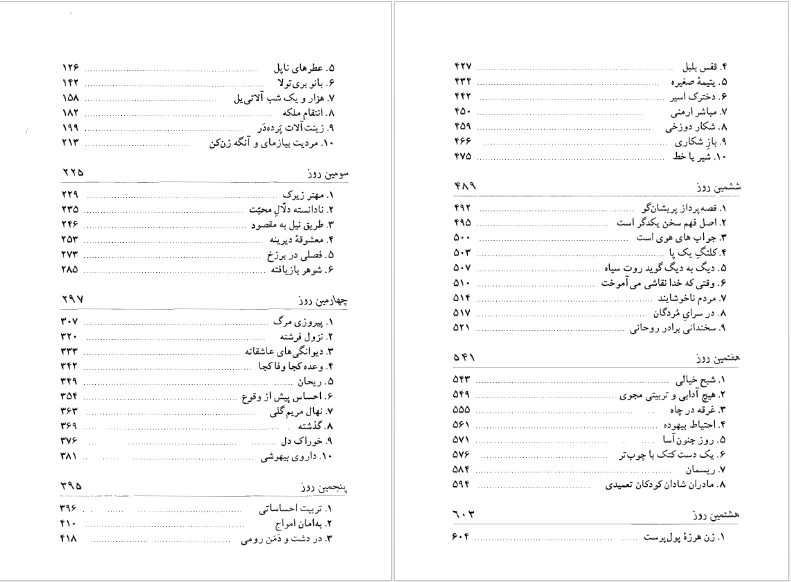 ۵. عطرهای ناپل ۱۲۶
۶. بانو بری‌تولا ۱۴۲
۷. هزار و یک شب آلاتی‌یل ۱۵۸
۸. انتقام ملکه ۱۸۲
۹. زینت‌آلات پَرده‌دَر ۱۹۹
۱۰. مردیت بیازمای و آنگه زن‌کن ۲۱۳
سومین روز ۲۲۵
۱. مهتر زیرک ۲۲۹
۲. نادانسته دلّالِ محبّت ۲۳۵
۳. طریق نیل به مقصود ۲۴۶
۴. معشوقهٔ دیرینه ۲۵۳
۵. فصلی در برزخ ۲۷۳
۶. شوهر بازیافته ۲۸۵
چهارمین روز ۲۹۷
۱. پیروزی مرگ ۳۰۷
۲. نزول فرشته ۳۲۰
۳. دیوانگی‌های عاشقانه ۳۳۳
۴. وعده کجا وفا کجا ۳۴۲
۵. ریحان ۳۴۹
۶. احساس پیش از وقوع ۳۵۴
۷. نهال مریم‌گلی ۳۶۳
۸. گذشته ۳۶۹
۹. خوراک دل ۳۷۶
۱۰. داروی بیهوشی ۳۸۱
پنجمین روز ۳۹۵
۱. تربیت احساساتی ۳۹۶
۲. به‌امان امواج ۴۱۰
۳. در دشت و دَمَن رومی ۴۱۸
۴. قفس بلبل ۴۲۷
۵. یتیمهٔ صغیره ۴۳۴
۶. دخترک اسیر ۴۴۲
۷. مباشر ارمنی ۴۵۰
۸. شکار دوزخی ۴۵۹
۹. بازِ شکاری ۴۶۶
۱۰. شیر یا خط ۴۷۵
ششمین روز ۴۸۹
۱. قصه‌پرداز پریشان‌گو ۴۹۲
۲. اصل فهم سخن یکدگر است ۴۹۵
۳. جواب های هوی است ۵۰۰
۴. کلنگِ یک پا ۵۰۳
۵. دیگ به دیگ گوید روت سیاه ۵۰۷
۶. وقتی که خدا نقاشی می‌آموخت ۵۱۰
۷. مردم ناخوشایند ۵۱۴
۸. در سرایِ مُردگان ۵۱۷
۹. سخندانی برادر روحانی ۵۲۱
هفتمین روز ۵۴۱
۱. شبح خیالی ۵۴۳
۲. هیچ آدابی و تربیتی مجوی ۵۴۹
۳. غرقه در چاه ۵۵۵
۴. احتیاط بیهوده ۵۶۱
۵. روز چنون‌آسا ۵۷۱
۶. یک دست کتک با چوب‌تر ۵۷۶
۷. ریسمان ۵۸۴
۸. مادران شادان کودکان تعمیدی ۵۹۴
هشتمین روز ۶۰۳
۱. زن هرزهٔ پول‌پرست ۶۰۴